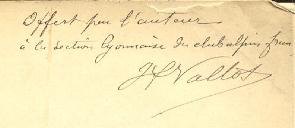 Offert par l'auteur
à la section lyonnaise du club alpin fran
J Vallot